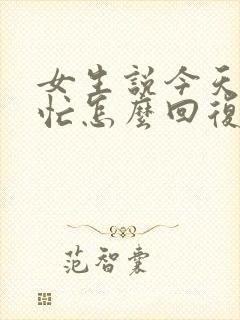 女生説今天
忙怎麼回復
范智囊